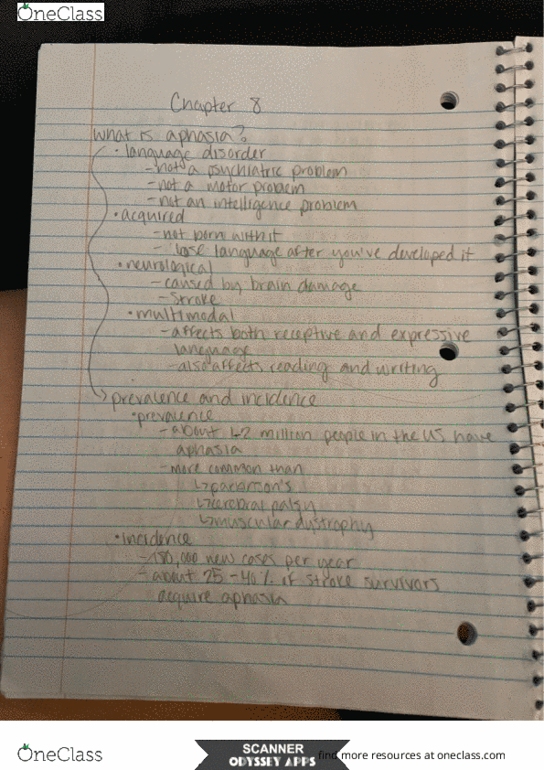 OneClass
Chapter 8
What is aphasia?
• language disorder
- not a psychiatric problem
- not a motor problem
- not an intelligence problem
• acquired
- not born with it
- lose language after you've developed it
• neurological
- caused by brain damage
- stroke
• multimodal
- affects both receptive and expressive
language
- also affects reading and writing
prevalence and incidence
• prevalence
- about 1-2 million people in the US have
aphasia
- more common than
↳ parkinson's
↳ cerebral palsy
↳ muscular dystrophy
• incidence
- 180,000 new cases per year
- about 25-40% if stroke survivors
acquire aphasia
OneClass
SCANNER
ODYSSEY APPS
find more resources at oneclass.com